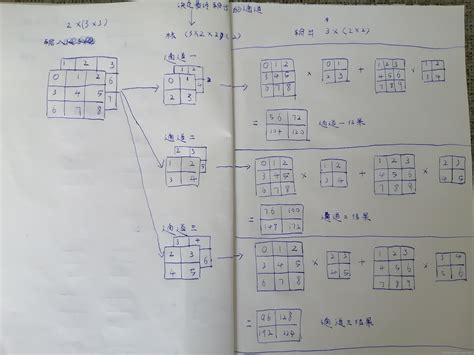 决定最终输出的通道
2×(3×3)
输入
核 (3×2×2×2)
输出 3×(2×2)
通道一
1 2 3
0 1 2
3 4 5
6 7 8
6
7
0 1
2 3
0 1 2
3 4 5
6 7 8
×
0 1
2 3
+
1 2 3
4 5 6
7 8 9
×
1 2
3 4
=
56 72
104 120
通道一结果
通道二
2 3
1 2
3 4
5
0 1 2
3 4 5
6 7 8
×
1 2
3 4
+
1 2 3
4 5 6
7 8 9
×
2 3
4 5
=
76 100
148 172
通道二结果
通道三
3 4
2 3
4 5
6
0 1 2
3 4 5
6 7 8
×
2 3
4 5
+
1 2 3
4 5 6
7 8 9
×
3 4
5 6
=
96 128
192 224
通道三结果